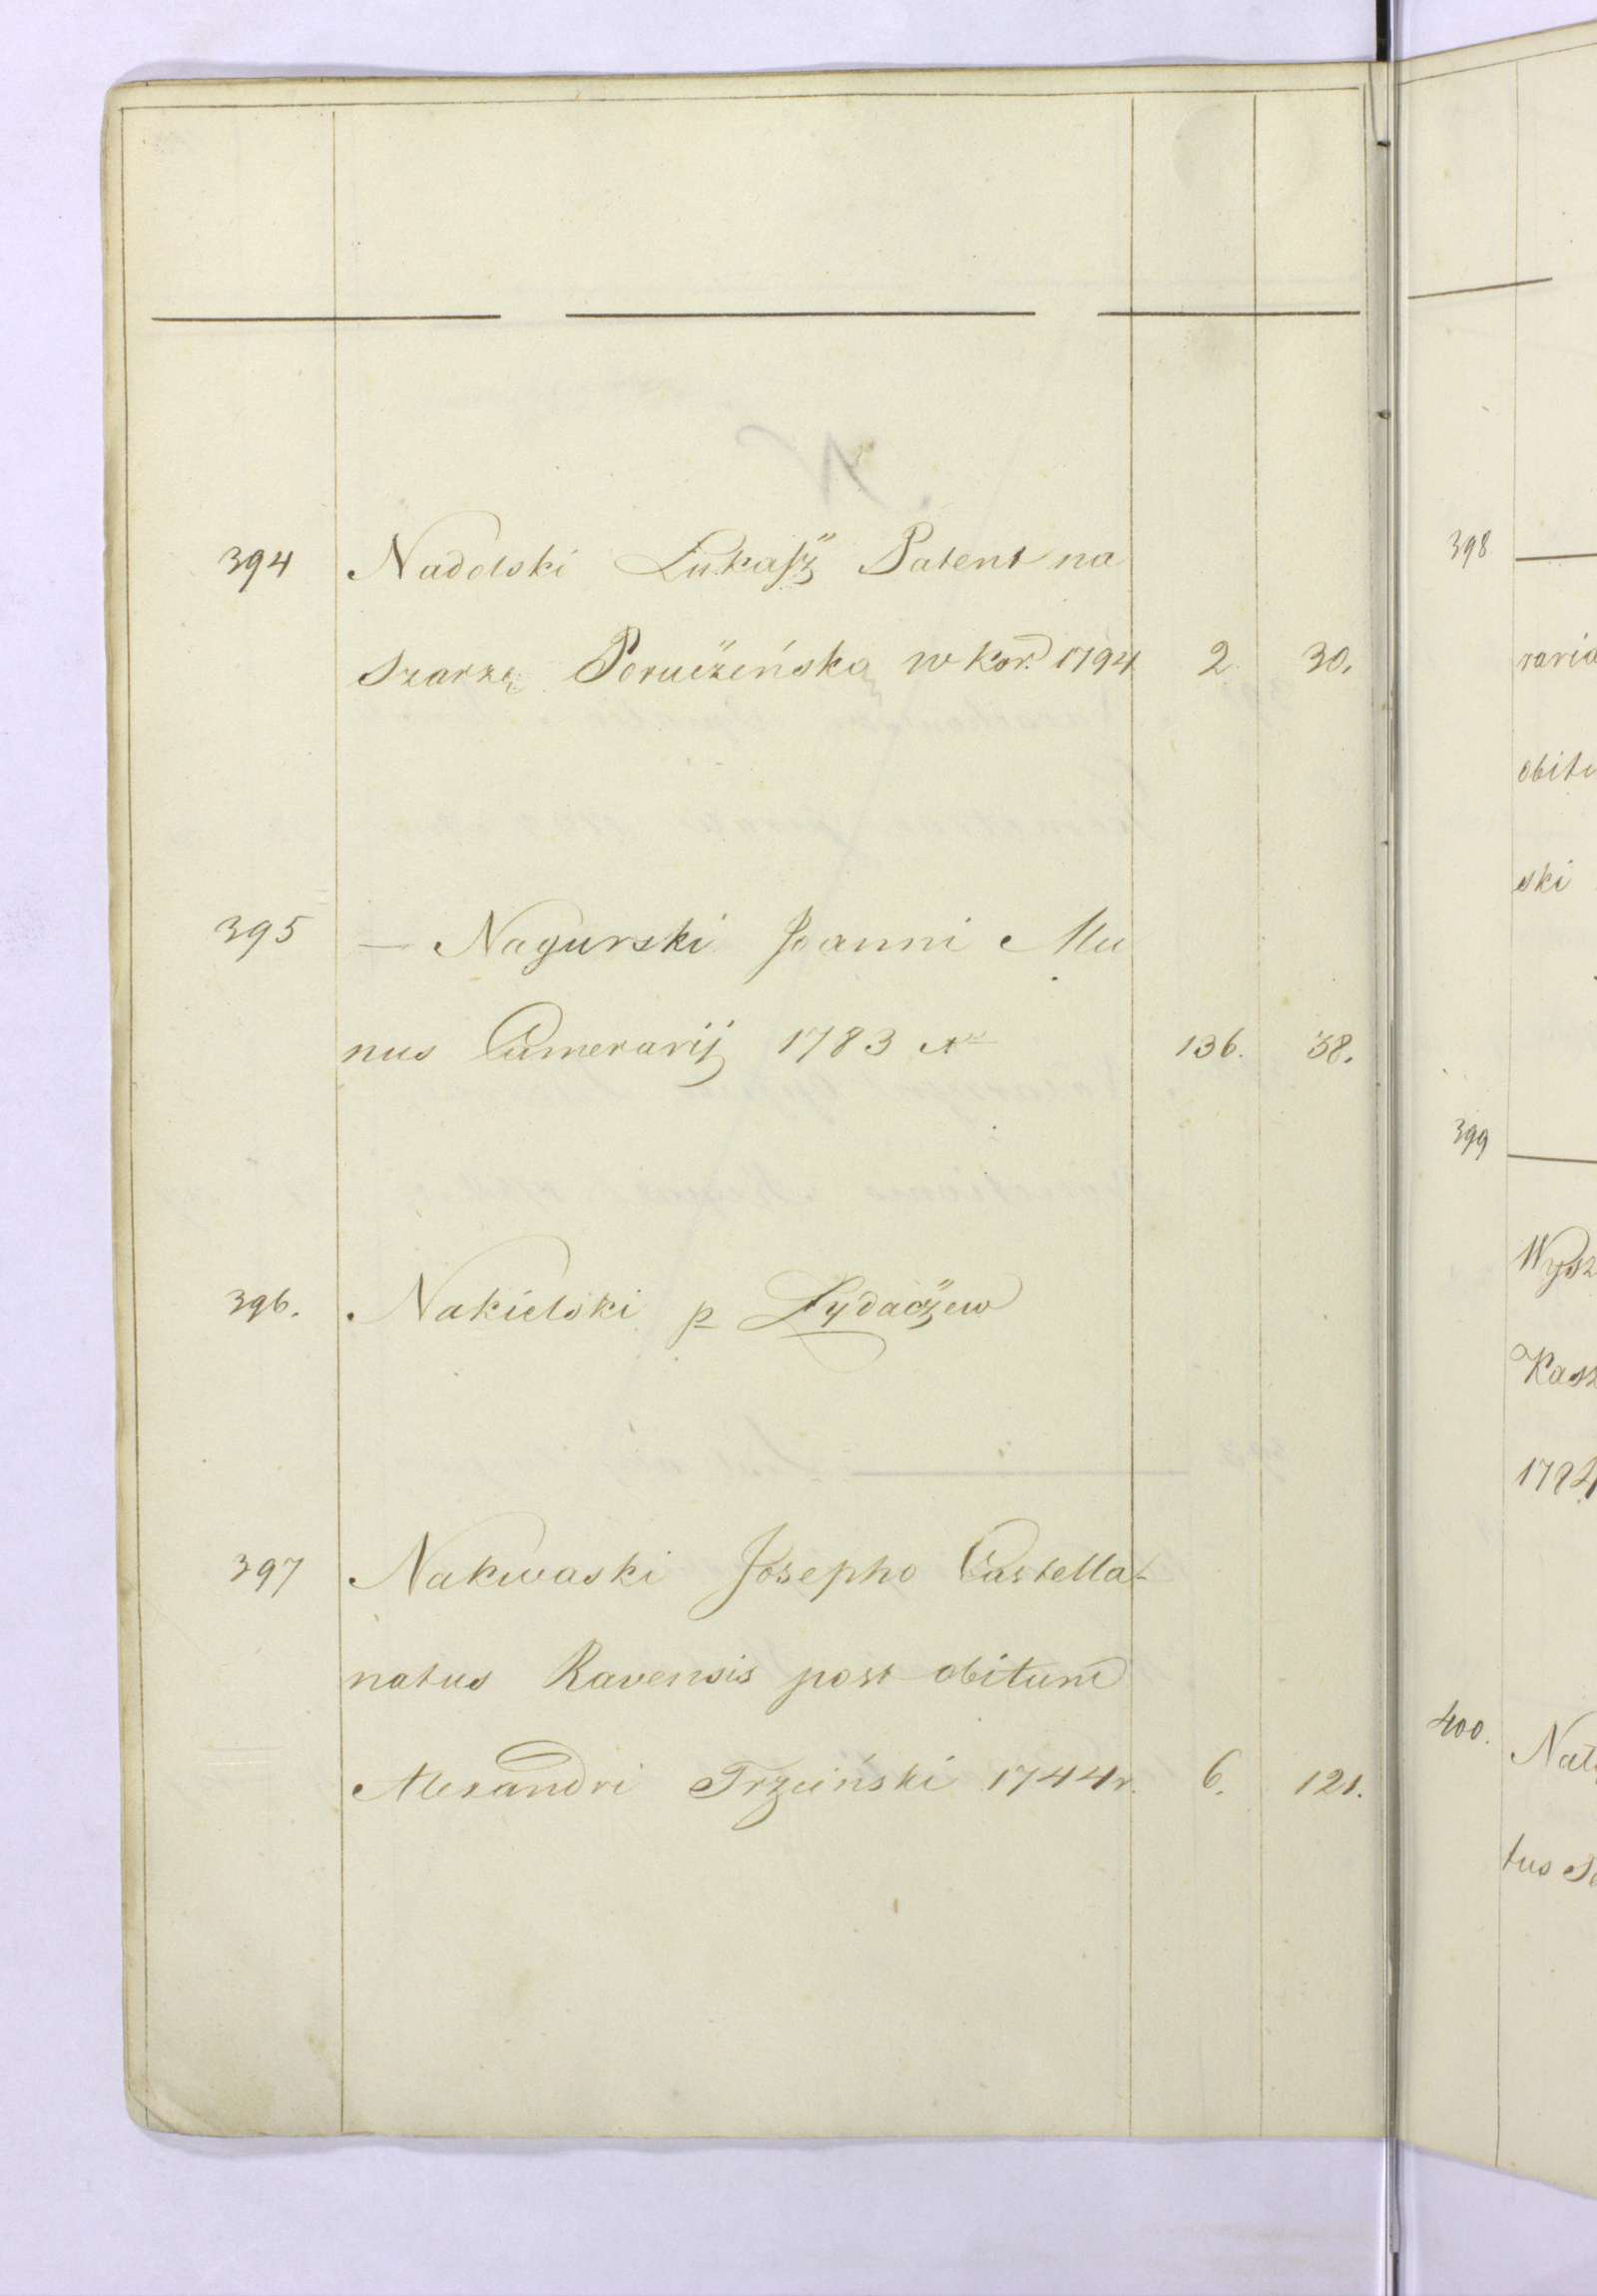 N
394 Nadolski Łukasz Patent na
Szarzę Poruczeńską w Kor. 1794 2 30.
395 — Nagurski Joanni Mu
nus Camerarij 1783 136. 38.
396. Nakielski p Łydaczew
397 Nakwaski Josepho Castella-
natus Ravensis post obitum
Alexandri Trzciński 1744 r. 6. 121.
398
rario
obitu
ski
399
Wysz
Kasz
1794
400. Nał
tus